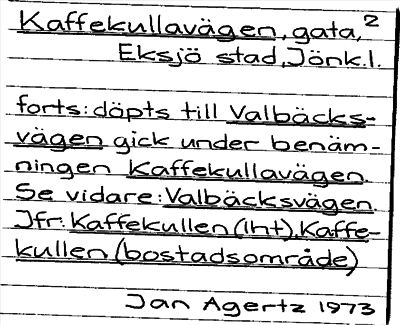 Kaffekullavägen, gata, 2
Eksjö stad, Jönk.l.
forts: döpts till Valbäcks-
vägen gick under benäm-
ningen Kaffekullavägen.
Se vidare: Valbäcksvägen.
Jfr. Kaffekullen (lht), Kaffe-
kullen (bostadsområde)
Jan Agertz 1973